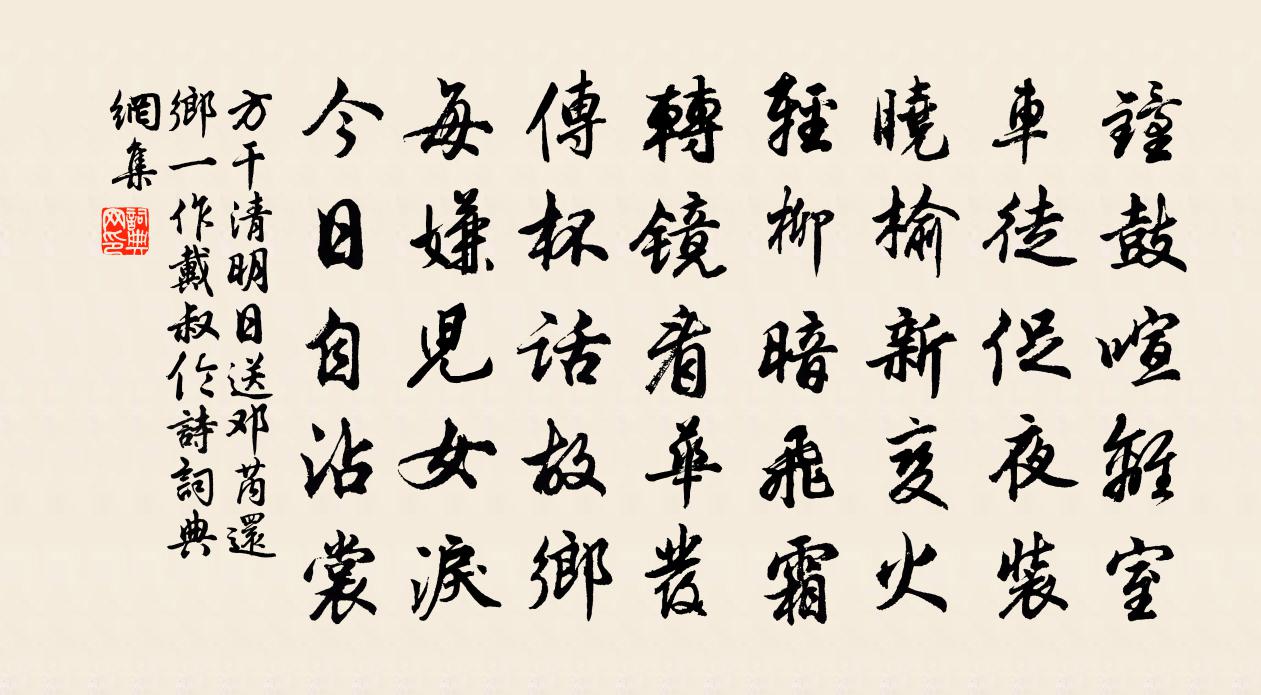 鐘鼓喧離室
車徒促夜裝
曉榆新变火
輕柳暗飛霜
轉鏡看華發
傳杯話故鄉
每嫌兒女淚
今日自沾裳
方干清明日送邓芮還
鄉一作戴叔伦詩詞典
網集
詞典
网印